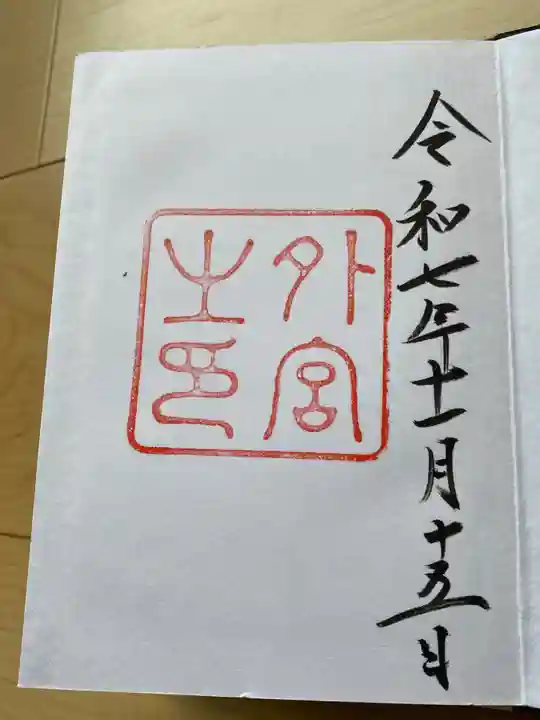 令和七年十一月十五日
外宮
之印